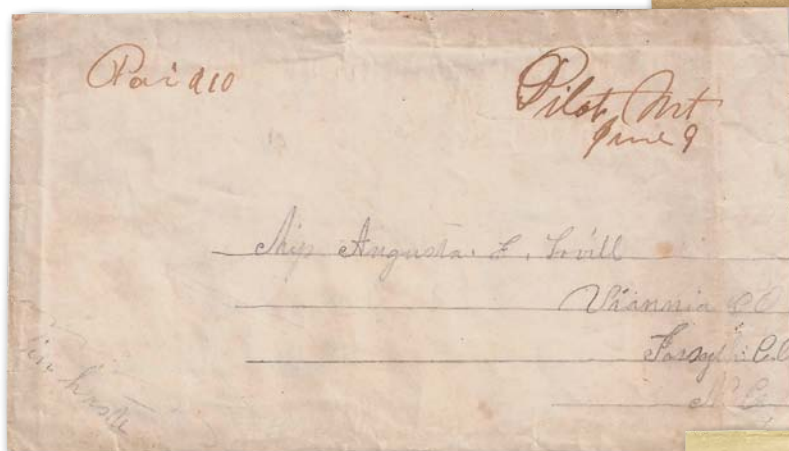 Paid 10
Pilot Mt
June 9
Miss Augusta. F. Lovill
Viannia P O
Forsyth. Co
N. Ca
in haste